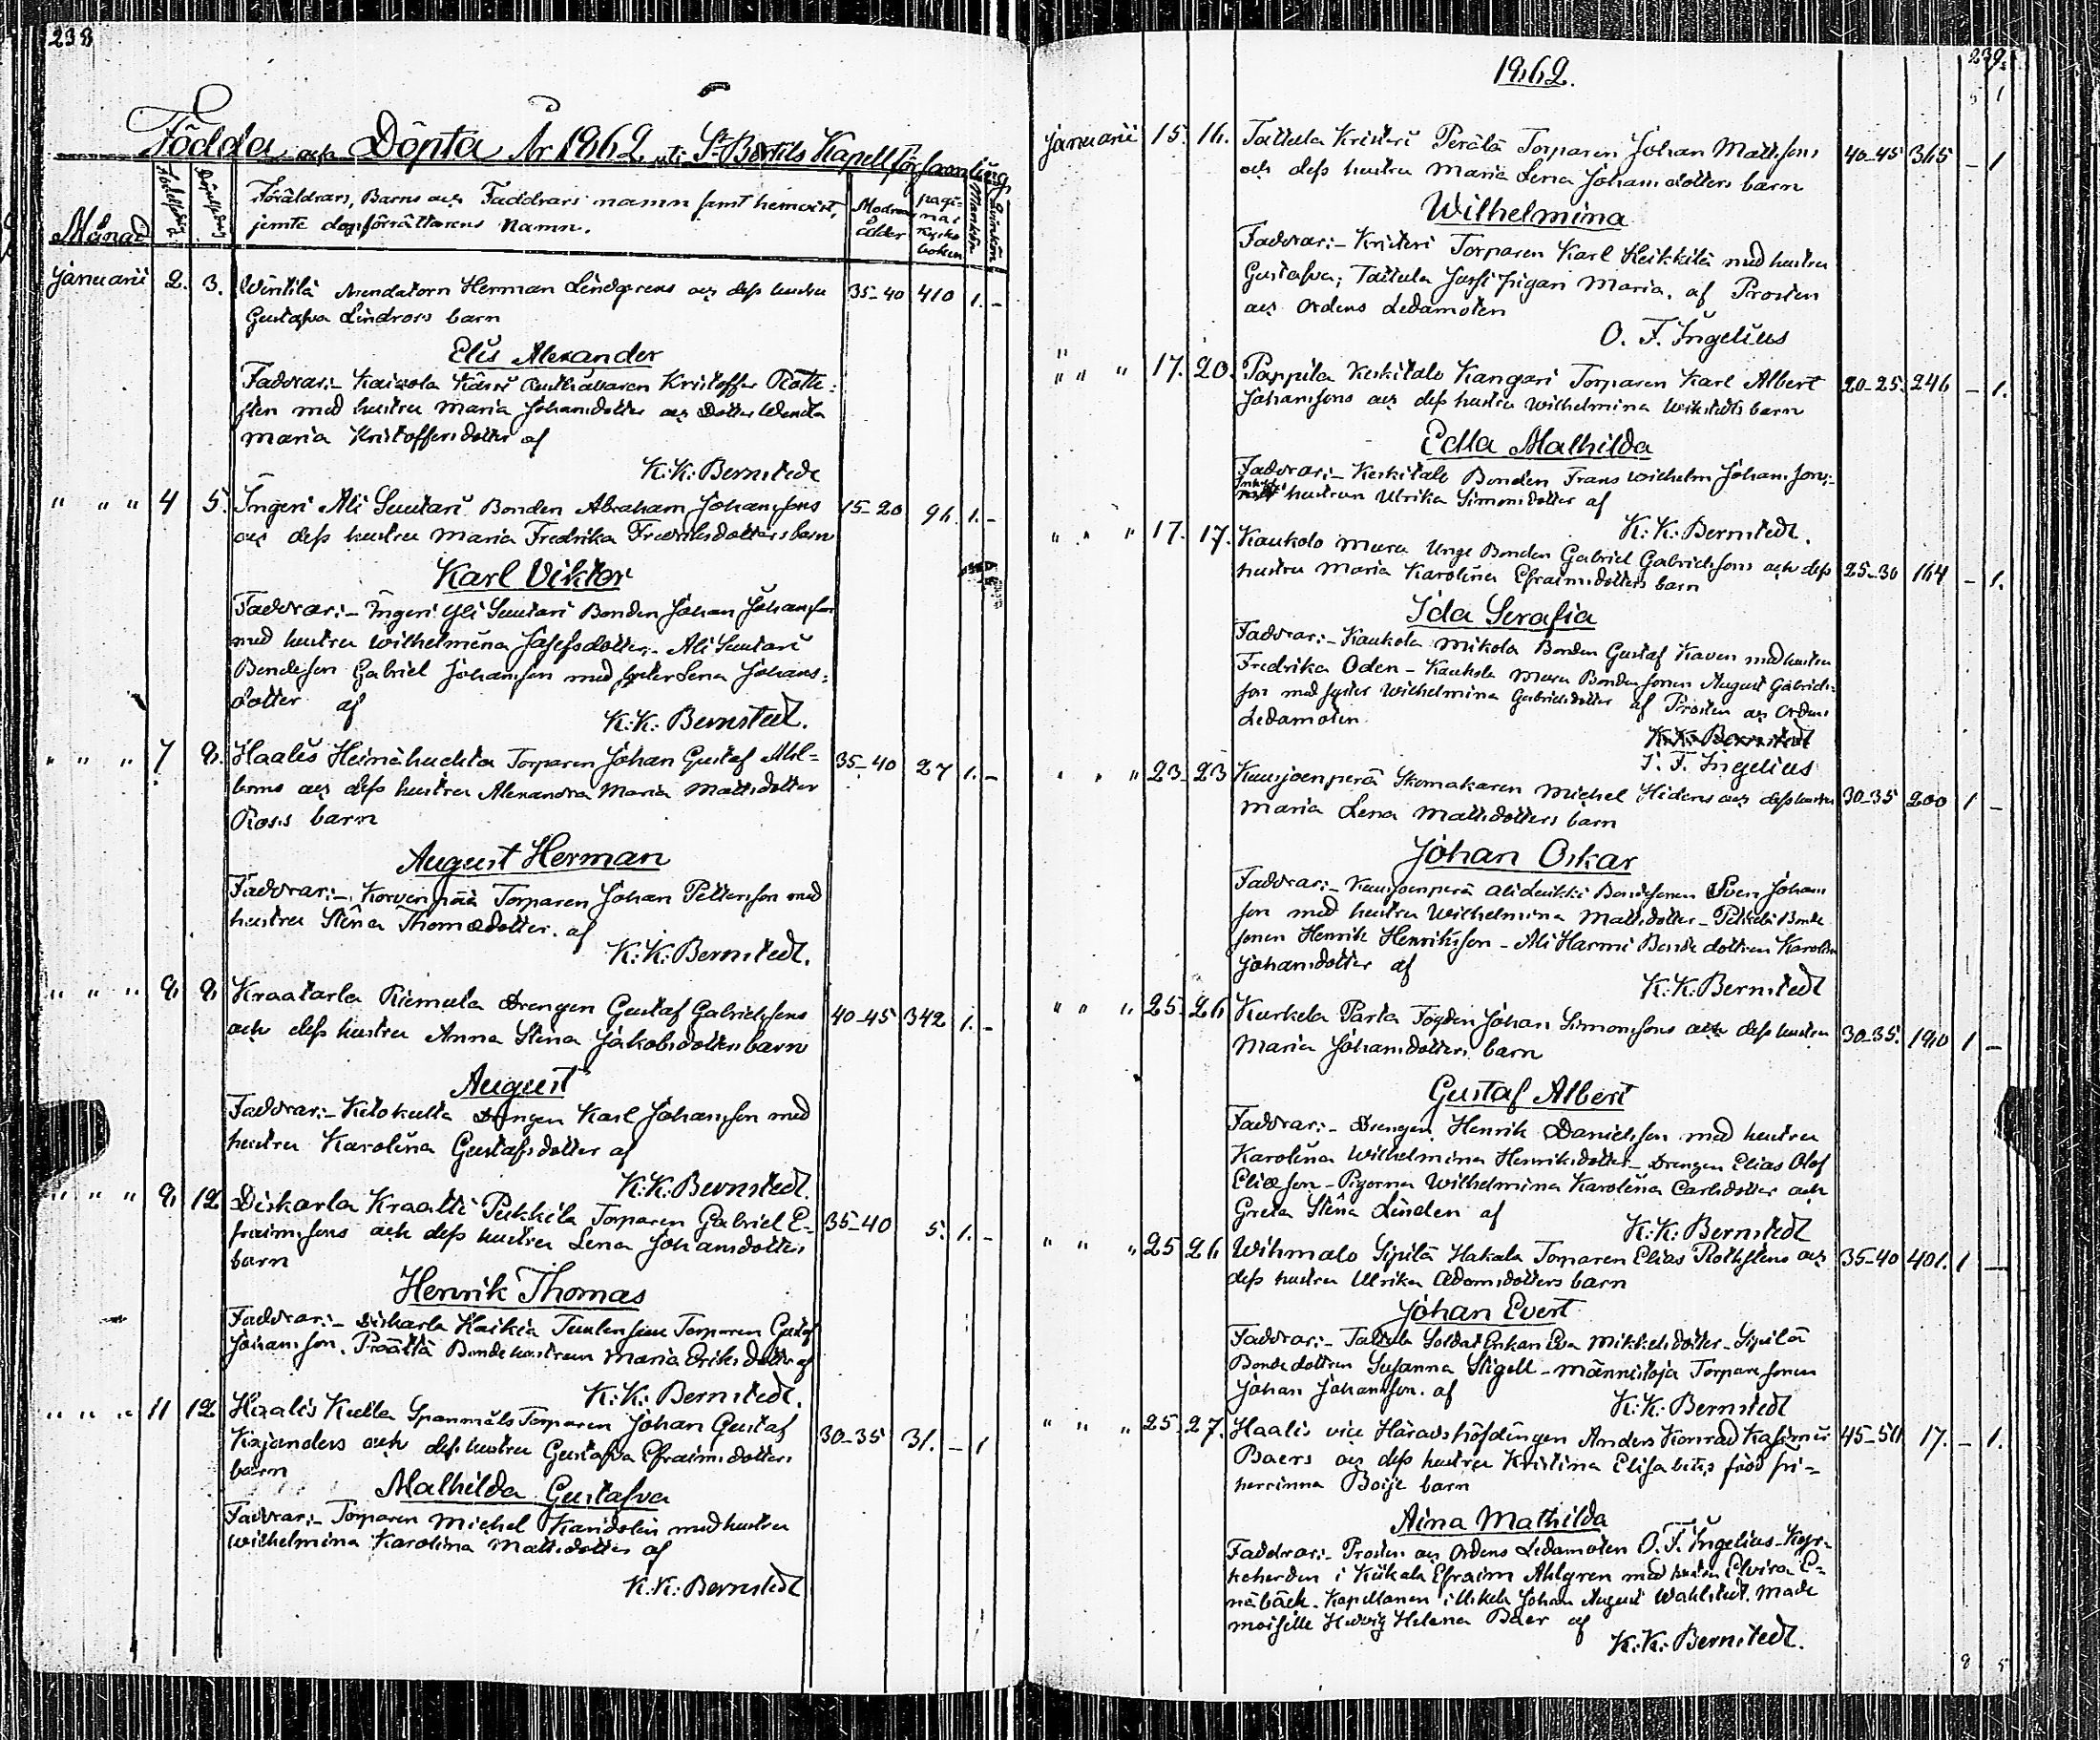 238
Födda och Döpta År 1862 uti St Bertils Kapellförsamling
Månad
Födelsedag
Döpelsedag
Föräldrars, Barns och Faddrars namn samt hemvist,
jemte dopförrättarens Namn.
Modrens ålder
pagina i Kyrkoboken
Mankön
Qvinkön
Januarii 2. 3. Wintilä Arendatorn Herman Lindgrens och dess hustru 35-40 410 1. -
Gustafva Lindross barn
Elis Alexander
Faddrar:- Kaivola Kärri Kristoffer Roth-
sten med hustru Maria Johansdotter och Dotter Wenda
Maria Kristoffersdotter af
K:K: Bernstedt
" " " 4 5. Ingeri Ali Suutari Bonden Abraham Johanssons 15-20 96. 1. -
och dess hustru Maria Fredrika Fredriksdotters barn
Karl Viktor
Faddrar:- Ingeri Yli Suutari Bonden Johan Johansson
med hustru Wilhelmina Josefsdotter,- Ali Suutari
Bondeson Gabriel Johansson med syster Lena Johans-
dotter af
K:K: Bernstedt.
" " " 7 8. Haalis Heinähuhta Torparen Johan Gustaf Ahl- 35-40 27 1. -
boms och dess hustru Alexandra Maria Mattsdotter
Ross barn
August Herman
Faddrar:- Korvenpää Torparen Johan Pettersson med
hustru Stina Thomædotter. af
K:K: Bernstedt.
" " " 8 8 Kraatarla Riemula Drengen Gustaf Gabrielssons 40-45 342 1. -
och dess hustru Anna Stina Jakobsdotters barn
August
Faddrar:- Ketokulta Drengen Karl Johansson med
hustru Karolina Gustafsdotter af
K:K: Bernstedt.
" " " 8 12 Diskarla Kraatti Pukkila Torparen Gabriel E- 35-40 5. 1. -
fraimssons och dess hustru Lena Johansdotters
barn
Henrik Thomas
Faddrar:- Diskarla Kaikia Tuulensuu Torparen Gustaf
Johansson. Präättä Bondehustrun Maria Eriksdotter af
K:K: Bernstedt.
" " " 11 12 Haalis Kulla Spannmåls Torparen Johan Gustaf 30-35 31. - 1
Kajanders och dess hustru Gustafva Efraimsdotters
barn
Mathilda Gustafva
Faddrar:- Torparen Michel Kandolin med hustru
Wilhelmina Karolina Mattsdotter af
K:K: Bernstedt
239.
1862.
5 1
Januarii 15. 16. Tattula Kristeri Perälä Torparen Johan Mattssons 40-45 365 - 1
och dess hustru Maria Lena Johansdotters barn
Wilhelmina
Faddrar:- Kristeri Torparen Karl Heikkilä med hustru
Gustafva; Tattula Jussi Pigan Maria. af Prosten
och Ordens Ledamoten
O. F. Ingelius
" " " 17. 20. Pappila Keskitalo Kangari Torparen Karl Albert 20-25. 246 - 1.
Johanssons och dess hustru Wilhelmina Wikstedts barn
Edla Mathilda
Faddrar:- Keskitalo Bonden Frans Wilhelm Johansson;-
hustrun Ulrika Simonsdotter af
K:K: Bernstedt.
" " " 17. 17. Kaukolo Mura Unge Bonden Gabriel Gabrielssons och dess 25-30 164 - 1.
hustru Maria Karolina Efraimsdotters barn
Ida Serafia
Faddrar:- Kaukola Mikola Bonden Gustaf Kaven med hustru
Fredrika Oden - Kaukola Mura Bondesonen August Gabriels-
son med syster Wilhelmina Gabrielsdotter af Prosten och Ordens
Ledamoten
K:K: Bernstedt
O. F. Ingelius
" " " 23 23 Kuusjoenperä Skomakaren Michel Hidens och dess hustru 30-35 200 1 -
Maria Lena Mattsdotters barn
Johan Oskar
Faddrar:- Kuusjoenperä Bondesonen Sven Johans
son med hustru Wilhelmina Mattsdotter - Bonde
sonen Henrik Henriksson - Ali Harmi Bonde dottren Karolina
Johansdotter af
K:K: Bernstedt
" " " 25. 26 Kurkela Parta Fogden Johan Simonssons och dess hustru 30-35. 180 1 -
Maria Johansdotters barn
Gustaf Albert
Faddrar:- Drengen Henrik Danielsson med hustru
Karolina Wilhelmina Henriksdotter - Drengen Elias Olof
Eliæsson - Pigorna Wilhelmina Karolina Carlsdotter och
Greta Stina Linden af
K:K: Bernstedt
" " " 25 26 Wihmalo Sipilä Hakala Torparen Elias Rothstens och 35-40 401. 1 -
dess hustru Ulrika Adamsdotters barn
Johan Evert
Faddrar:- Tattula Soldat Enkan Eva Mikkelsdotter - Sipilä
Bonde dottren Susanna Stigell - Männistöja Torparesonen
Johan Johansson. af
K:K: Bernstedt
" " " 25. 27. Haalis vice Häradshöfdingen Anders Konrad Kasimir 45-50 17. - 1.
Baers och dess hustru Kristina Elisabeths född fri-
herrinna Boije barn
Aina Mathilda
Faddrar:- Prosten och Ordens Ledamoten O. F. Ingelius - Kyr-
koherden i Kiikala Efraim Ahlgren med hustru Elvira E-
näbäck. Kapellanen i Uskela Johan August Wahlstedt. Made
moiselle Hedvig Helena Baer af
K:K: Bernstedt.
8 5